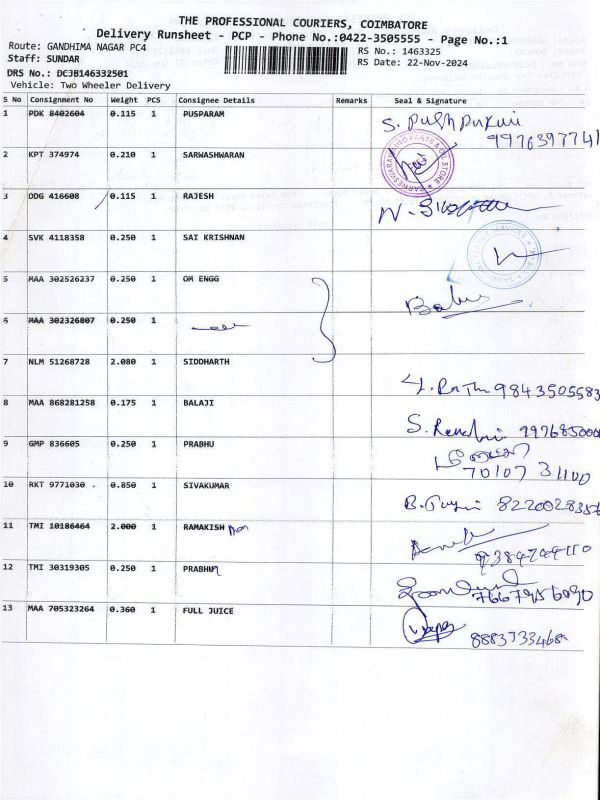 THE PROFESSIONAL COURIERS, COIMBATORE
Delivery Runsheet - PCP - Phone No.:0422-3505555 - Page No.:1
Route: GANDHIMA NAGAR PC4 RS No.: 1463325
Staff: SUNDAR RS Date: 22-Nov-2024
DRS No.: DCJB146332501
Vehicle: Two Wheeler Delivery
S No Consignment No Weight PCS Consignee Details Remarks Seal & Signature
1 PDK 8402604 0.115 1 PUSPARAM S. Pushpurani
9976397741
2 KPT 374974 0.210 1 SARWASHWARAN
3 DDG 416608 0.115 1 RAJESH
4 SVK 4118358 0.250 1 SAI KRISHNAN
5 MAA 302526237 0.250 1 OM ENGG Babu
6 MAA 302326807 0.250 1
7 NLM 51268728 2.080 1 SIDDHARTH 9843505583
8 MAA 868281258 0.175 1 BALAJI S.
9 GMP 836605 0.250 1 PRABHU
70107 31100
10 RKT 9771030 0.850 1 SIVAKUMAR B.
11 TMI 10186464 2.000 1 RAMAKISH
12 TMI 30319305 0.250 1 PRABHU
13 MAA 705323264 0.360 1 FULL JUICE